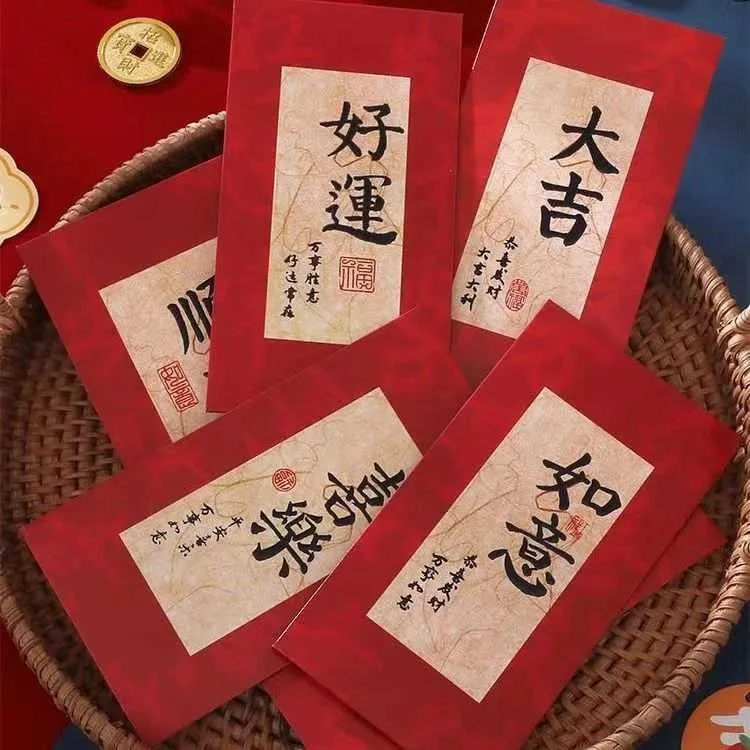 招進財寶
好運
万事胜意
好运常在
福
大吉
恭喜发财
大吉大利
順
喜樂
平安喜乐
万事如意
如意
恭喜发财
万事如意